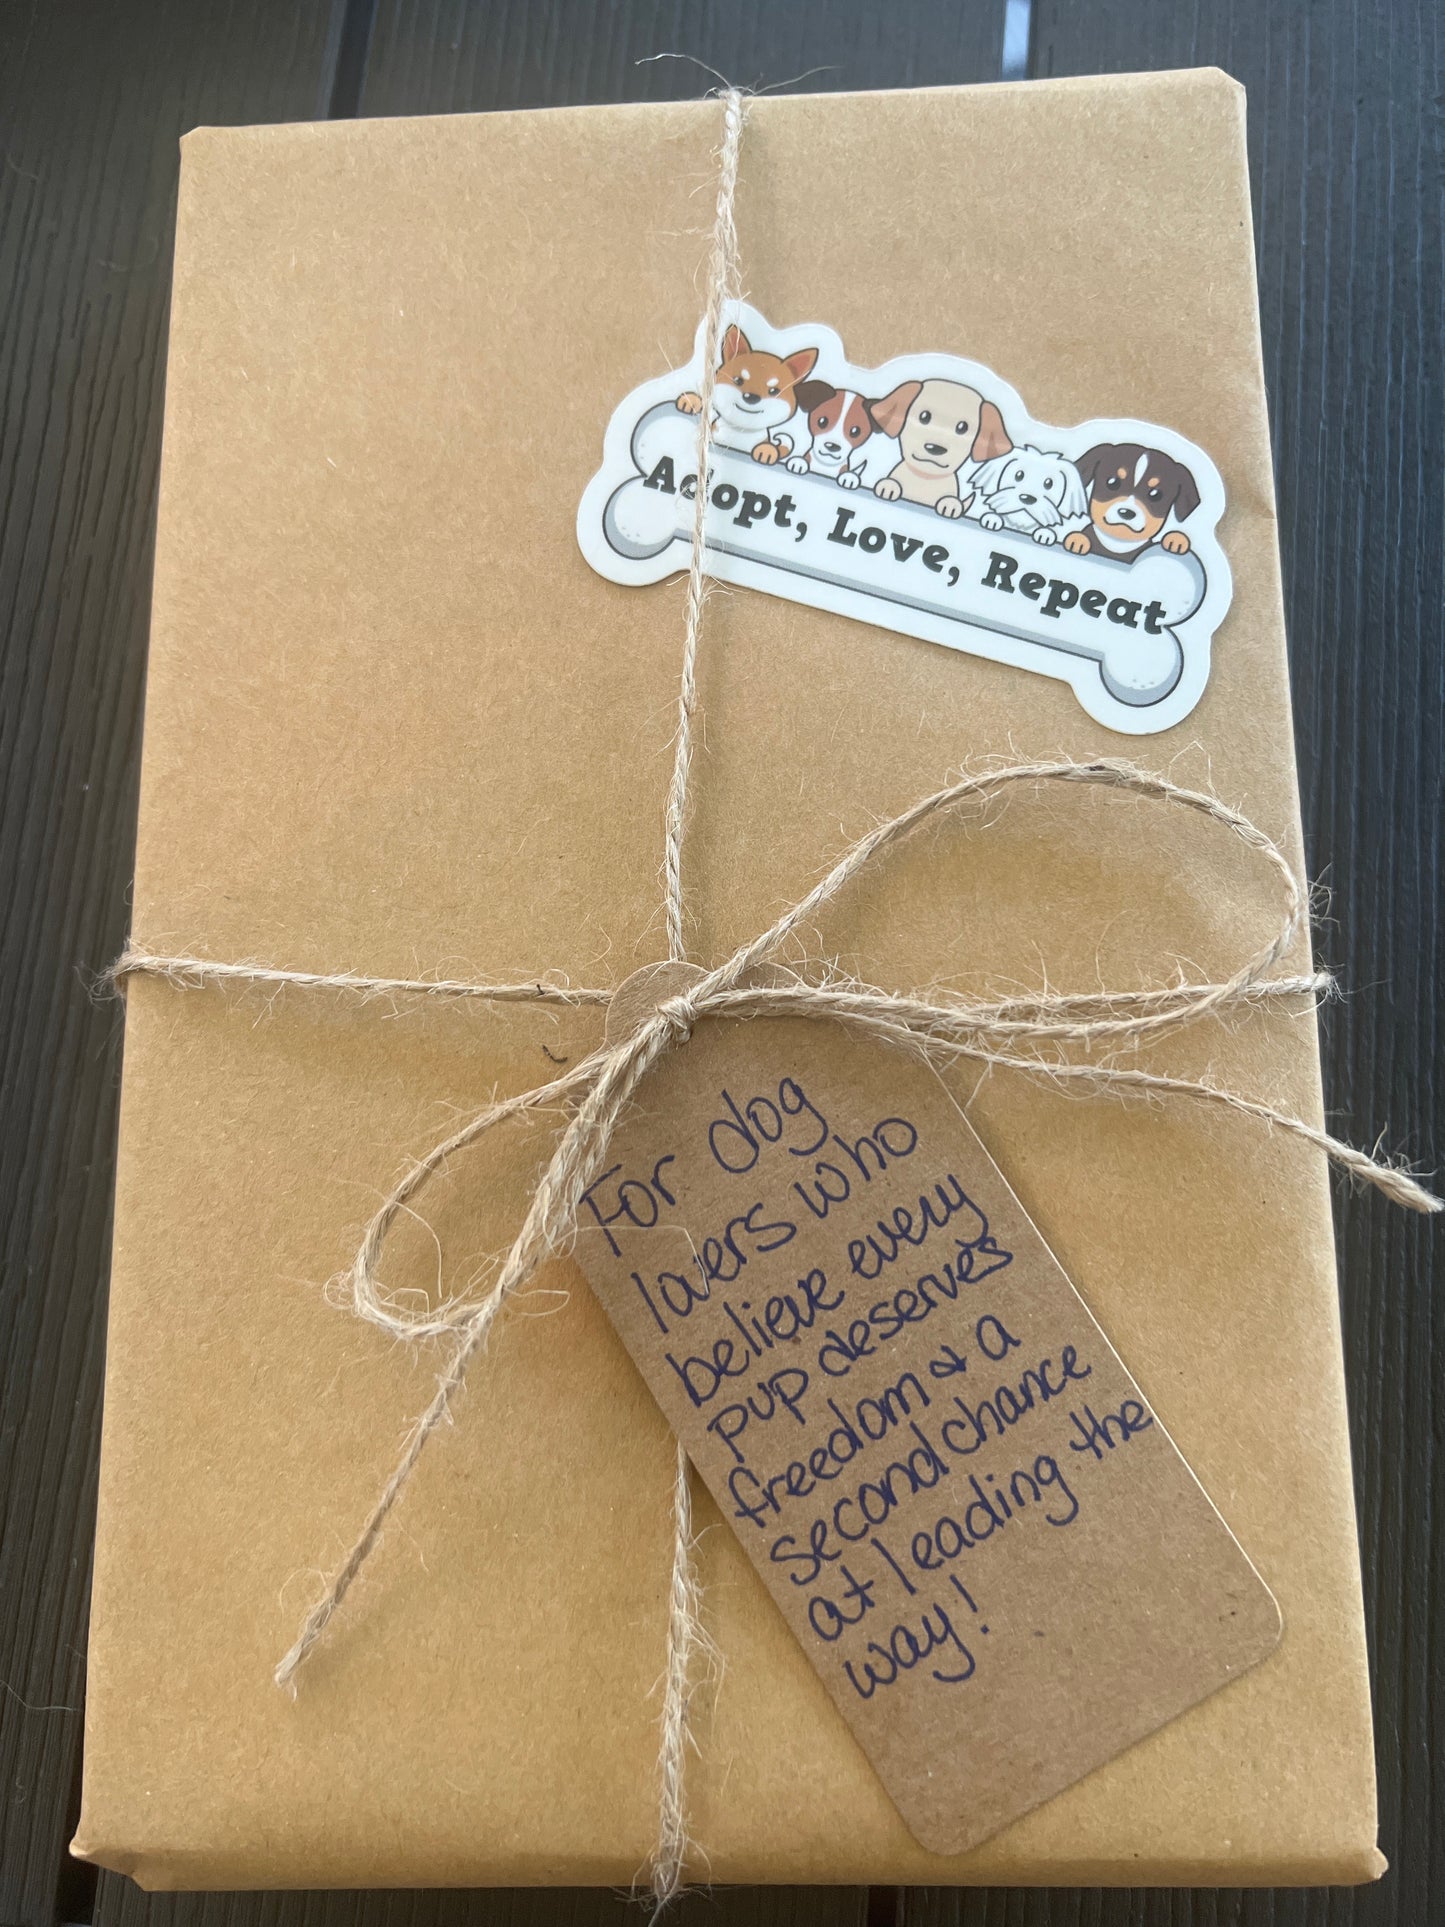 Adopt, Love, Repeat
For dog
lovers who
believe every
pup deserves
freedom & a
second chance
at leading the
way!